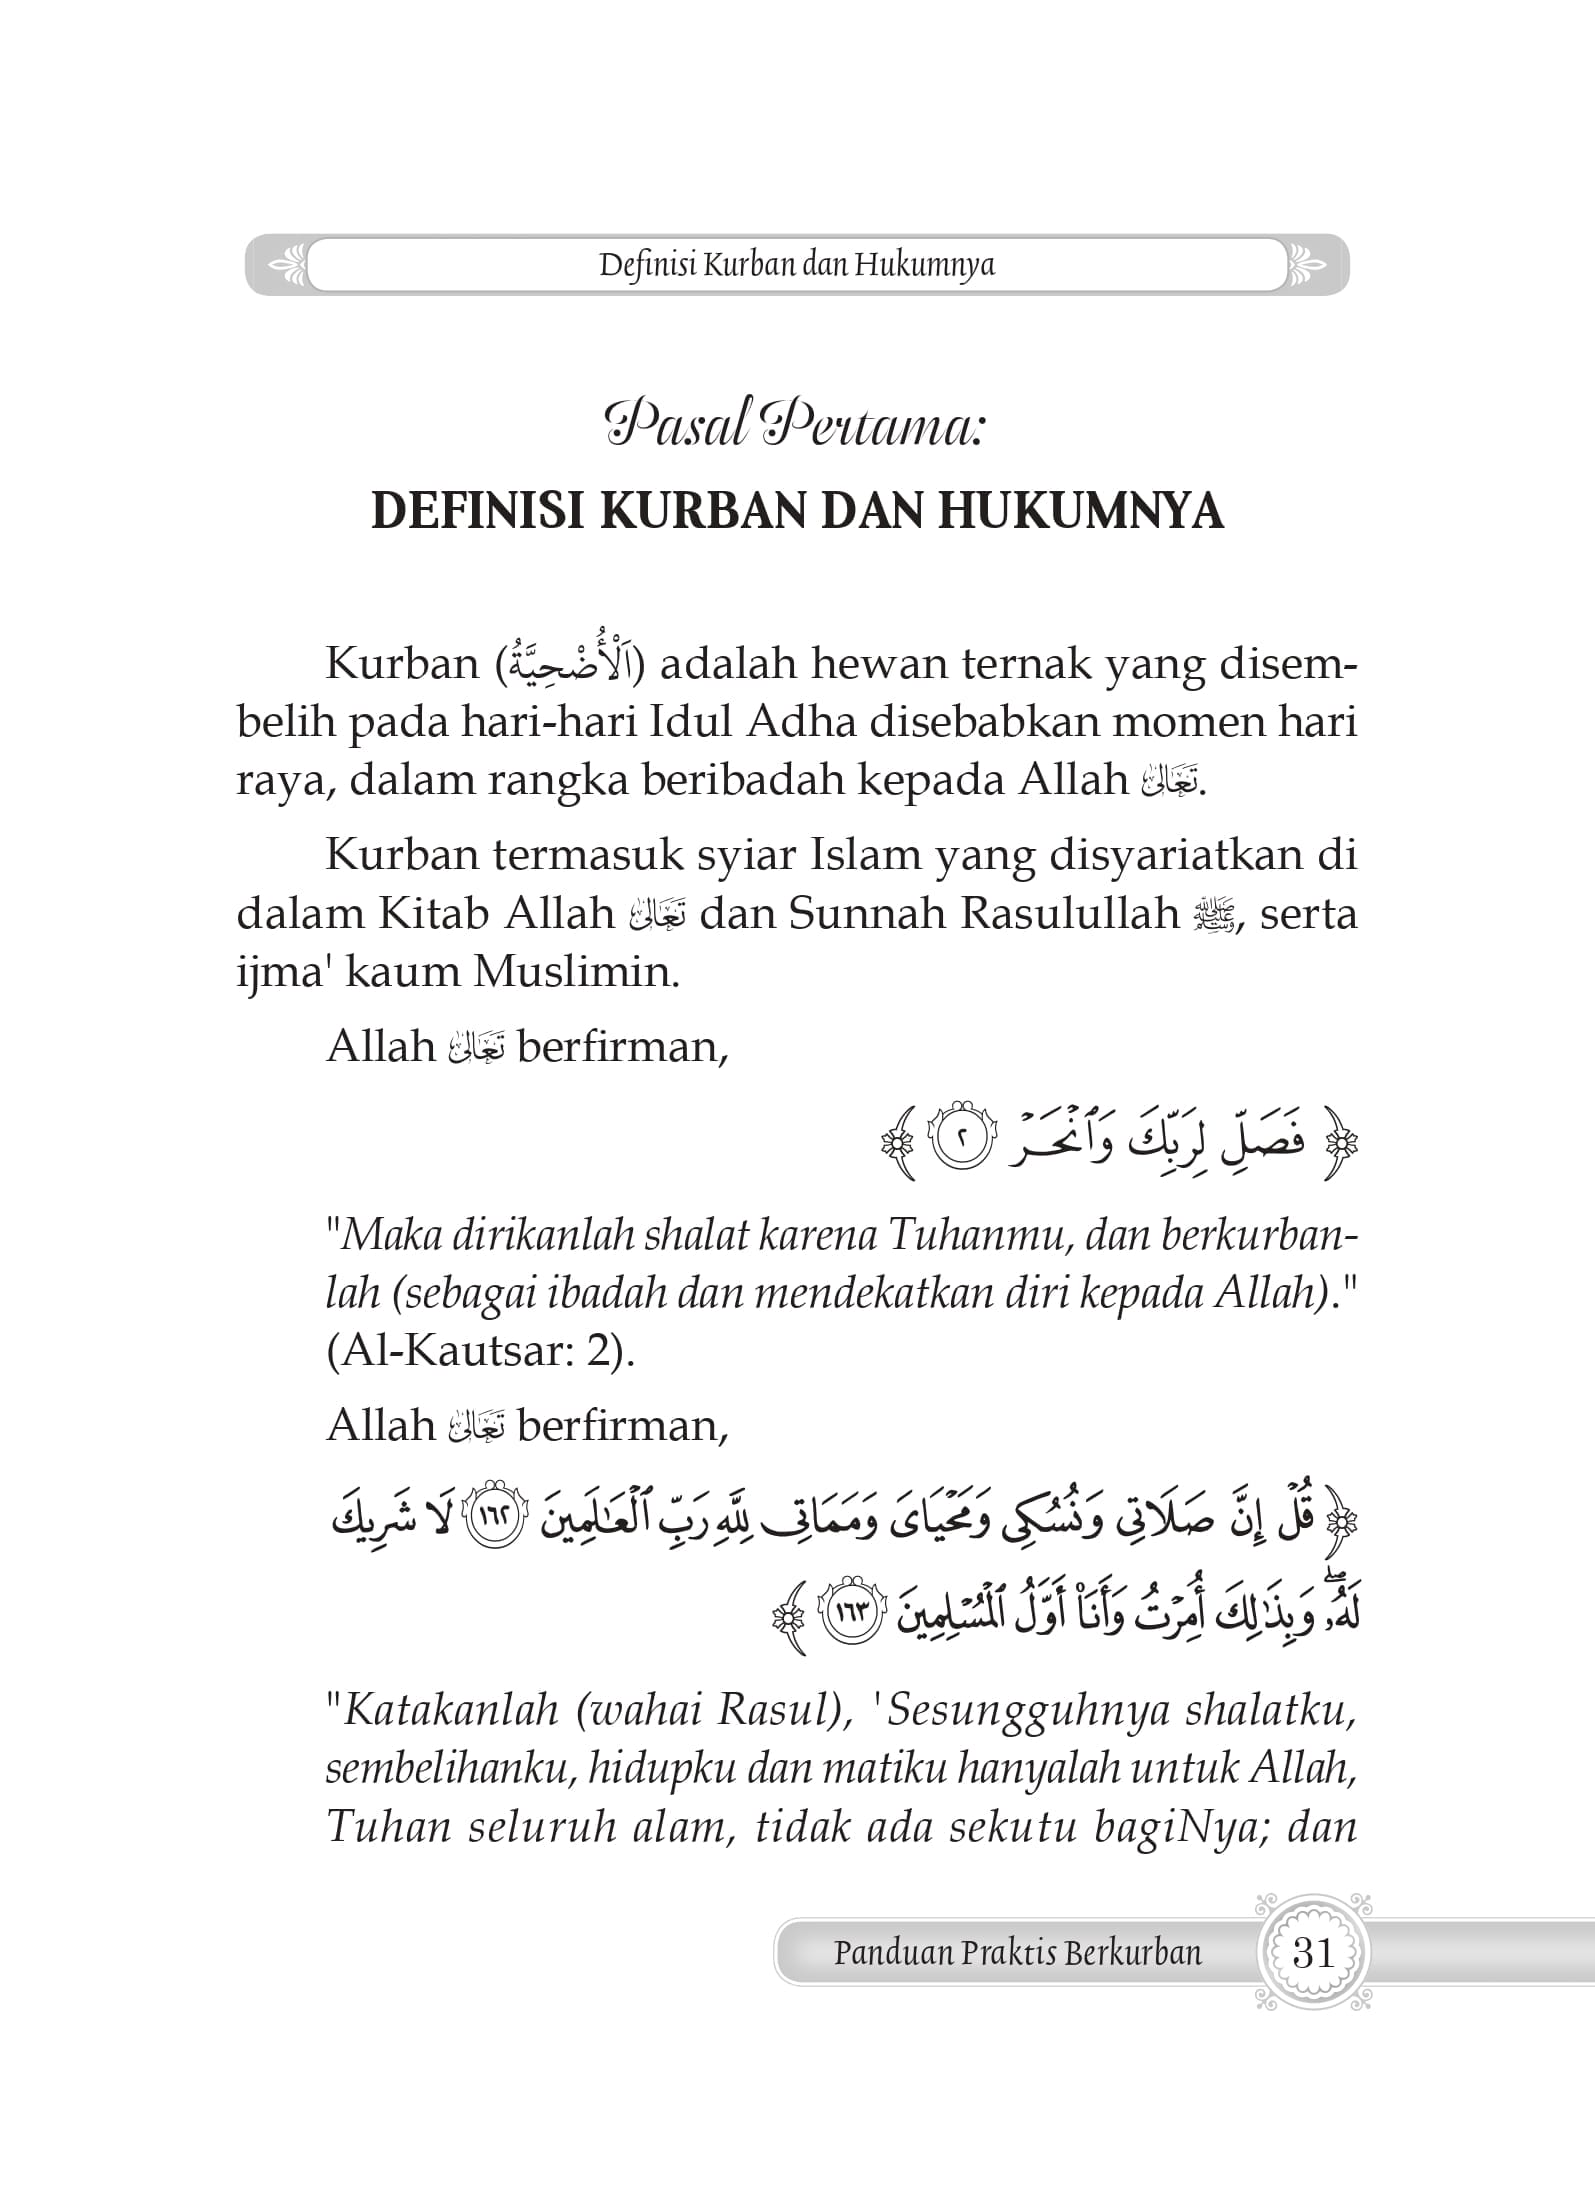 Definisi Kurban dan Hukumnya
Pasal Pertama:
DEFINISI KURBAN DAN HUKUMNYA
Kurban (اَلْأُضْحِيَّةُ) adalah hewan ternak yang disem-
belih pada hari-hari Idul Adha disebabkan momen hari
raya, dalam rangka beribadah kepada Allah تَعَالَى.
Kurban termasuk syiar Islam yang disyariatkan di
dalam Kitab Allah تَعَالَى dan Sunnah Rasulullah ﷺ, serta
ijma' kaum Muslimin.
Allah تَعَالَى berfirman,
﴿ فَصَلِّ لِرَبِّكَ وَٱنْحَرْ ٢ ﴾
"Maka dirikanlah shalat karena Tuhanmu, dan berkurban-
lah (sebagai ibadah dan mendekatkan diri kepada Allah)."
(Al-Kautsar: 2).
Allah تَعَالَى berfirman,
﴿ قُلْ إِنَّ صَلَاتِي وَنُسُكِي وَمَحْيَايَ وَمَمَاتِي لِلَّهِ رَبِّ ٱلْعَٰلَمِينَ ١٦٢ لَا شَرِيكَ
لَهُۥۖ وَبِذَٰلِكَ أُمِرْتُ وَأَنَا۠ أَوَّلُ ٱلْمُسْلِمِينَ ١٦٣ ﴾
"Katakanlah (wahai Rasul), 'Sesungguhnya shalatku,
sembelihanku, hidupku dan matiku hanyalah untuk Allah,
Tuhan seluruh alam, tidak ada sekutu bagiNya; dan
Panduan Praktis Berkurban 31